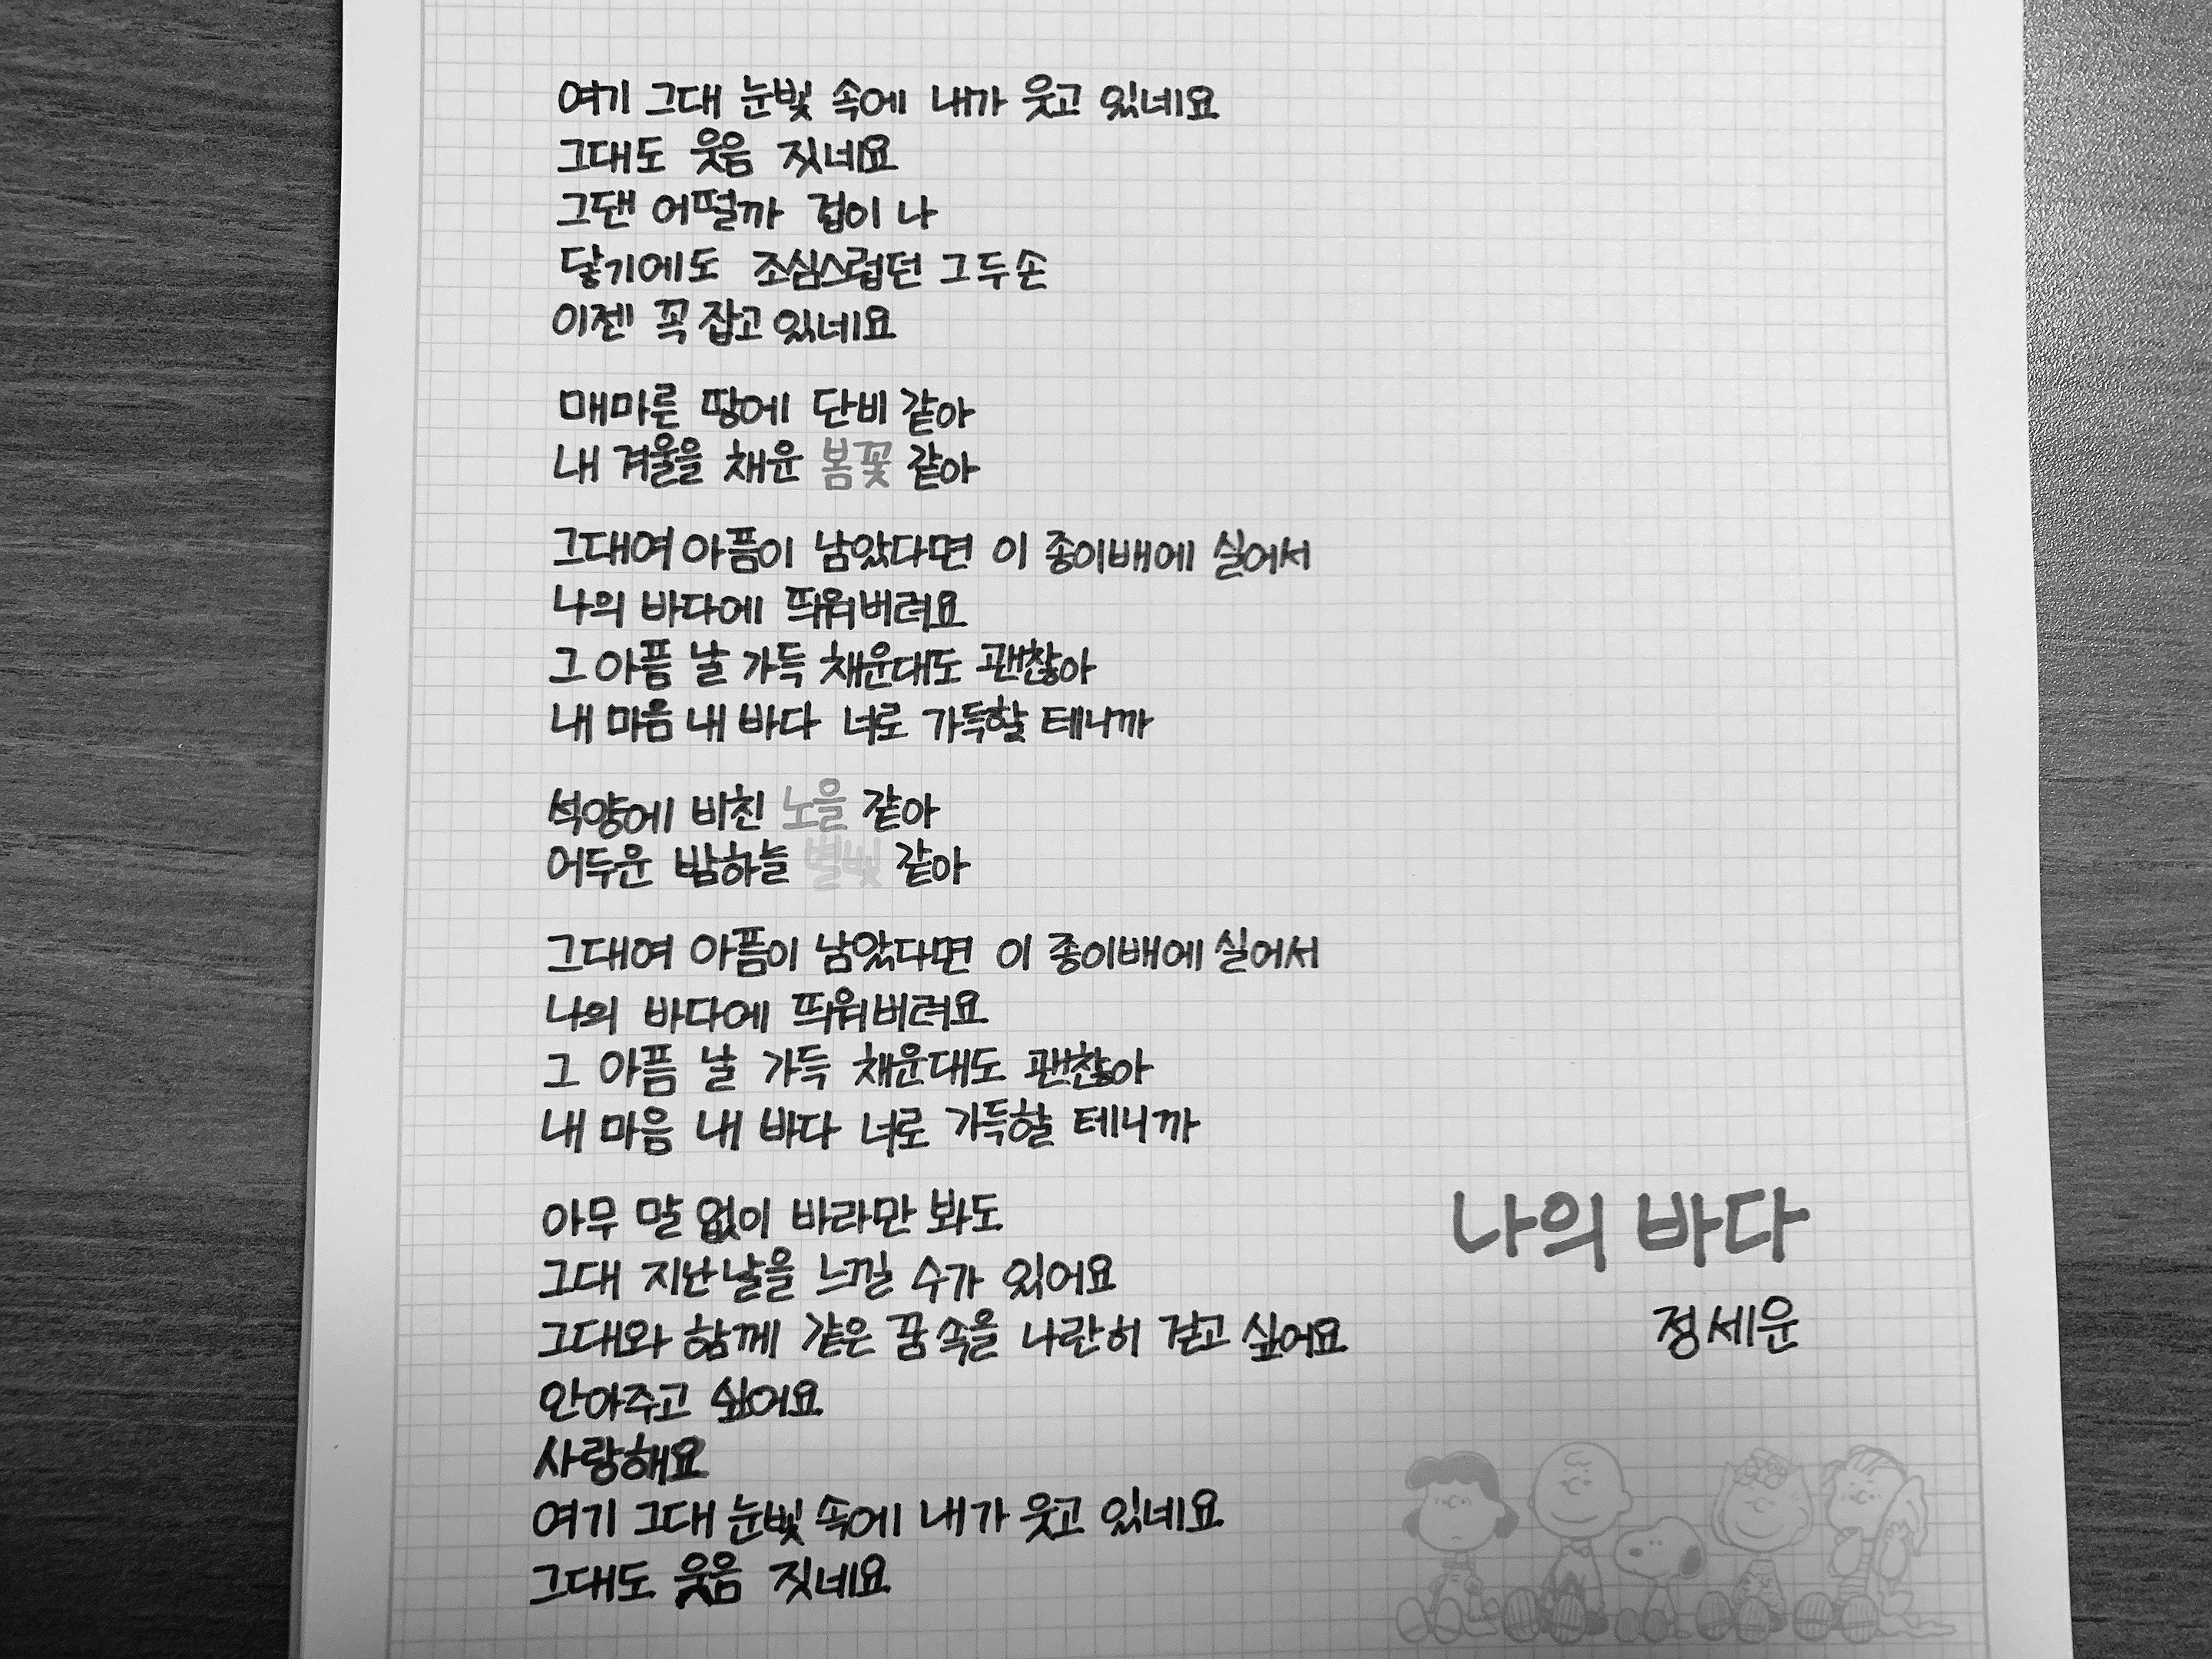 여기 그대 눈빛 속에 내가 웃고 있네요
그대도 웃음 짓네요
그댄 어떨까 겁이 나
닿기에도 조심스럽던 그 두 손
이젠 꼭 잡고 있네요
매마른 땅에 단비 같아
내 겨울을 채운 봄꽃 같아
그대여 아픔이 남았다면 이 종이배에 실어서
나의 바다에 띄워버려요
그 아픔 날 가득 채운대도 괜찮아
내 마음 내 바다 너로 가득할 테니까
석양에 비친 노을 같아
어두운 밤하늘 별빛 같아
그대여 아픔이 남았다면 이 종이배에 실어서
나의 바다에 띄워버려요
그 아픔 날 가득 채운대도 괜찮아
내 마음 내 바다 너로 가득할 테니까
아무 말 없이 바라만 봐도
그대 지난날을 느낄 수가 있어요
그대와 함께 같은 꿈 속을 나란히 걷고 싶어요
안아주고 싶어요
사랑해요
여기 그대 눈빛 속에 내가 웃고 있네요
그대도 웃음 짓네요
나의 바다
정세운